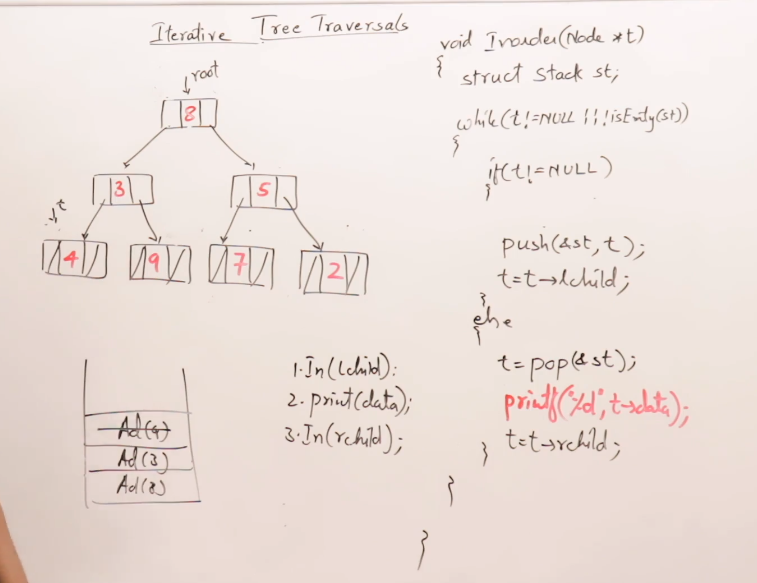 Iterative Tree Traversals
root
8
3 5
t
4 9 7 2
Ad(4)
Ad(3)
Ad(8)
1. In(lchild);
2. print(data);
3. In(rchild);
void Inorder(Node *t)
{
struct Stack st;
while(t!=NULL || !isEmty(st))
{
if(t!=NULL)
{
push(&st, t);
t=t→lchild;
}
else
{
t=pop(&st);
printf("%d", t→data);
t=t→rchild;
}
}
}